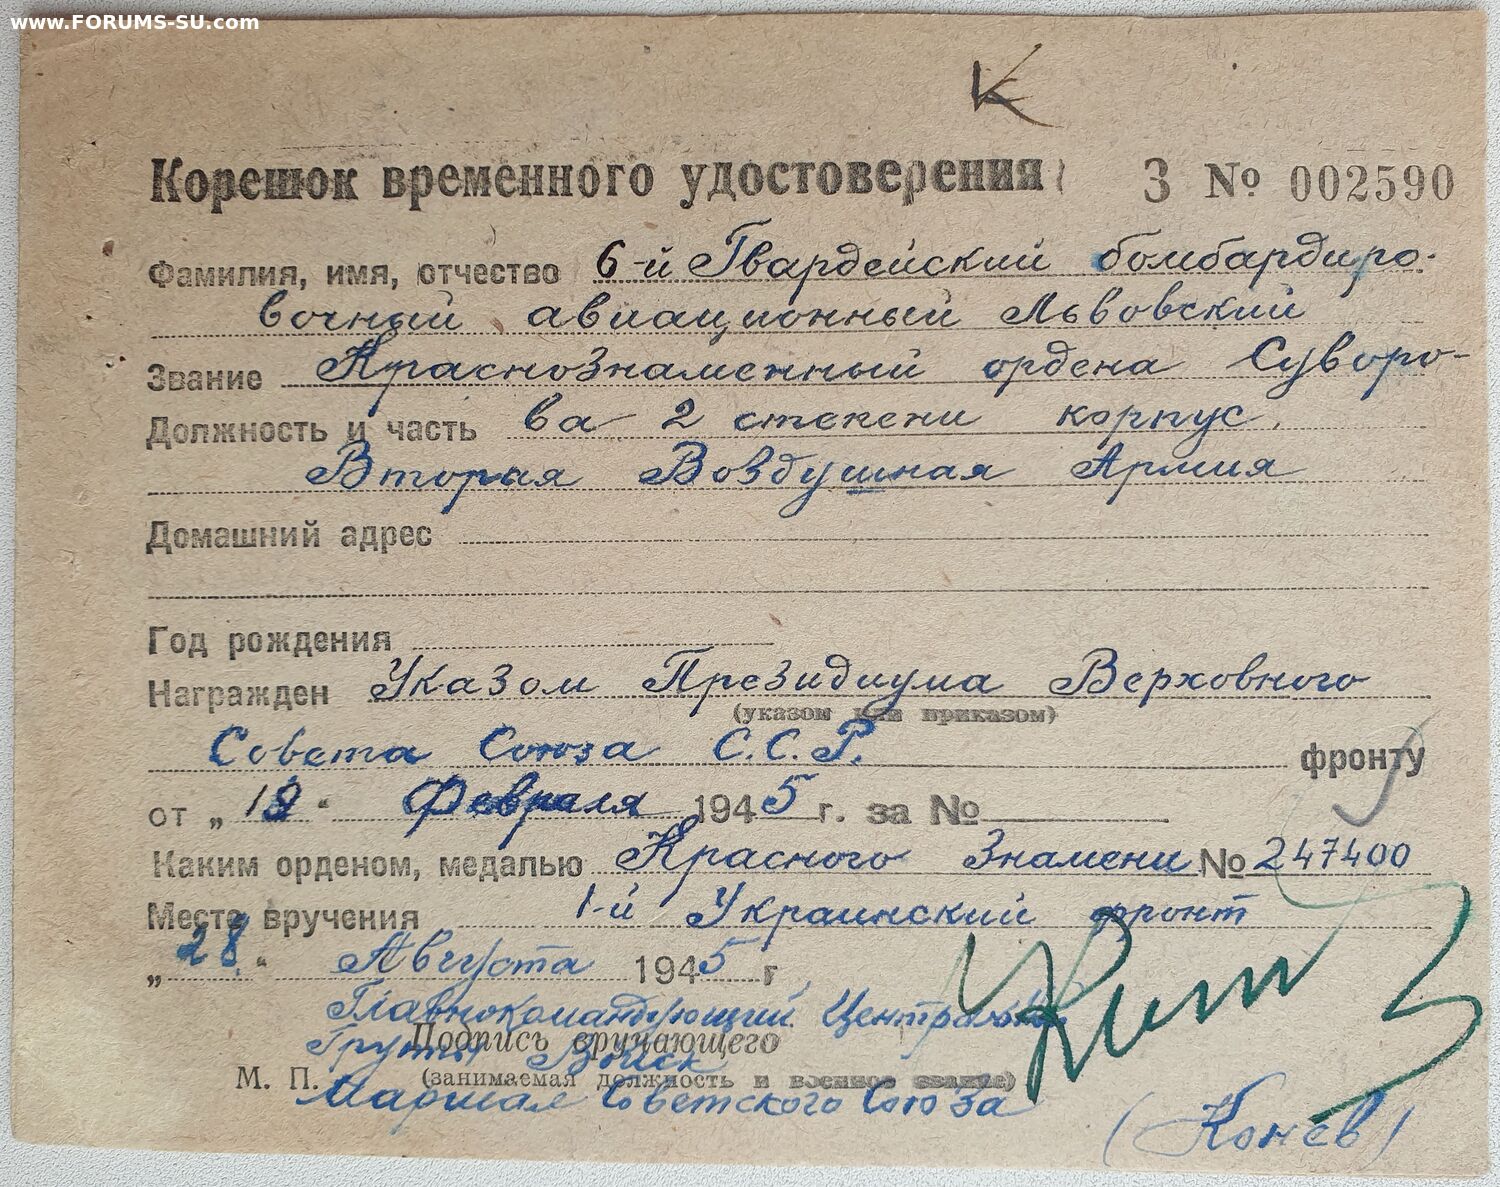 www.FORUMS-SU.com
К
Корешок временного удостоверения З № 002590
Фамилия, имя, отчество 6-й Гвардейский бомбардиро-
вочный авиационный Львовский
Звание Краснознаменный ордена Суворо-
Должность и часть ва 2 степени корпус.
Вторая Воздушная Армия
Домашний адрес
Год рождения
Награжден Указом Президиума Верховного
(указом или приказом)
Совета Союза С.С.Р. фронту
от „ “ Февраля 1945 г. за №
Каким орденом, медалью Красного Знамени № 247400
Место вручения 1-й Украинский фронт
„28“ Августа 1945 г.
Главнокомандующий Центральной
Подпись вручающего
Группы Войск
М. П. (занимаемая должность и военное звание)
Маршал Советского Союза
(Конев)